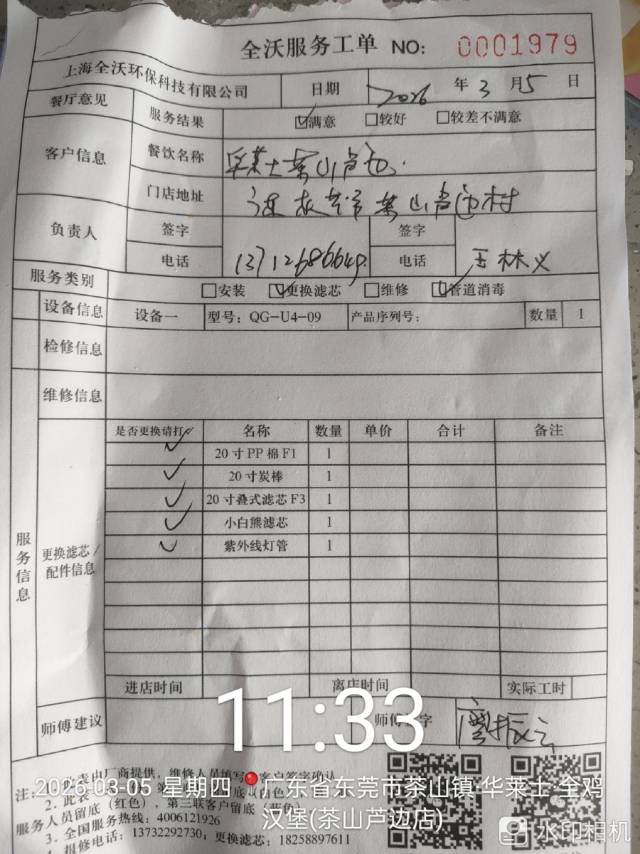 全沃服务工单 NO: 0001979
上海全沃环保科技有限公司 日期 2026 年 3 月 5 日
餐厅意见 服务结果 ☑满意 □较好 □较差不满意
客户信息 餐饮名称 华莱士茶山芦边.
门店地址 茶山芦边村
负责人 签字 签字
电话 13712686649 电话 王林义
服务类别 □安装 ☑更换滤芯 □维修 ☑管道消毒
设备信息 设备一 型号: QG-U4-09 产品序列号: 数量 1
检修信息
维修信息
服务信息
更换滤芯/配件信息
是否更换请打✓ 名称 数量 单价 合计 备注
✓ 20寸PP棉F1 1
✓ 20寸炭棒 1
✓ 20寸叠式滤芯F3 1
✓ 小白熊滤芯 1
✓ 紫外线灯管 1
进店时间 离店时间 实际工时
师傅建议 师傅签字
11:33
2026-03-05 星期四 广东省东莞市茶山镇·华莱士·全鸡汉堡(茶山芦边店)
注: 1. 此表由厂商提供, 维修人员填写, 客户签字确认
2. 此表
服务人员留底(红色), 第三联客户留底(蓝色)
3. 全国服务热线: 4006121926
4. 报修电话: 13732292730; 更换滤芯: 18258897611
水印相机